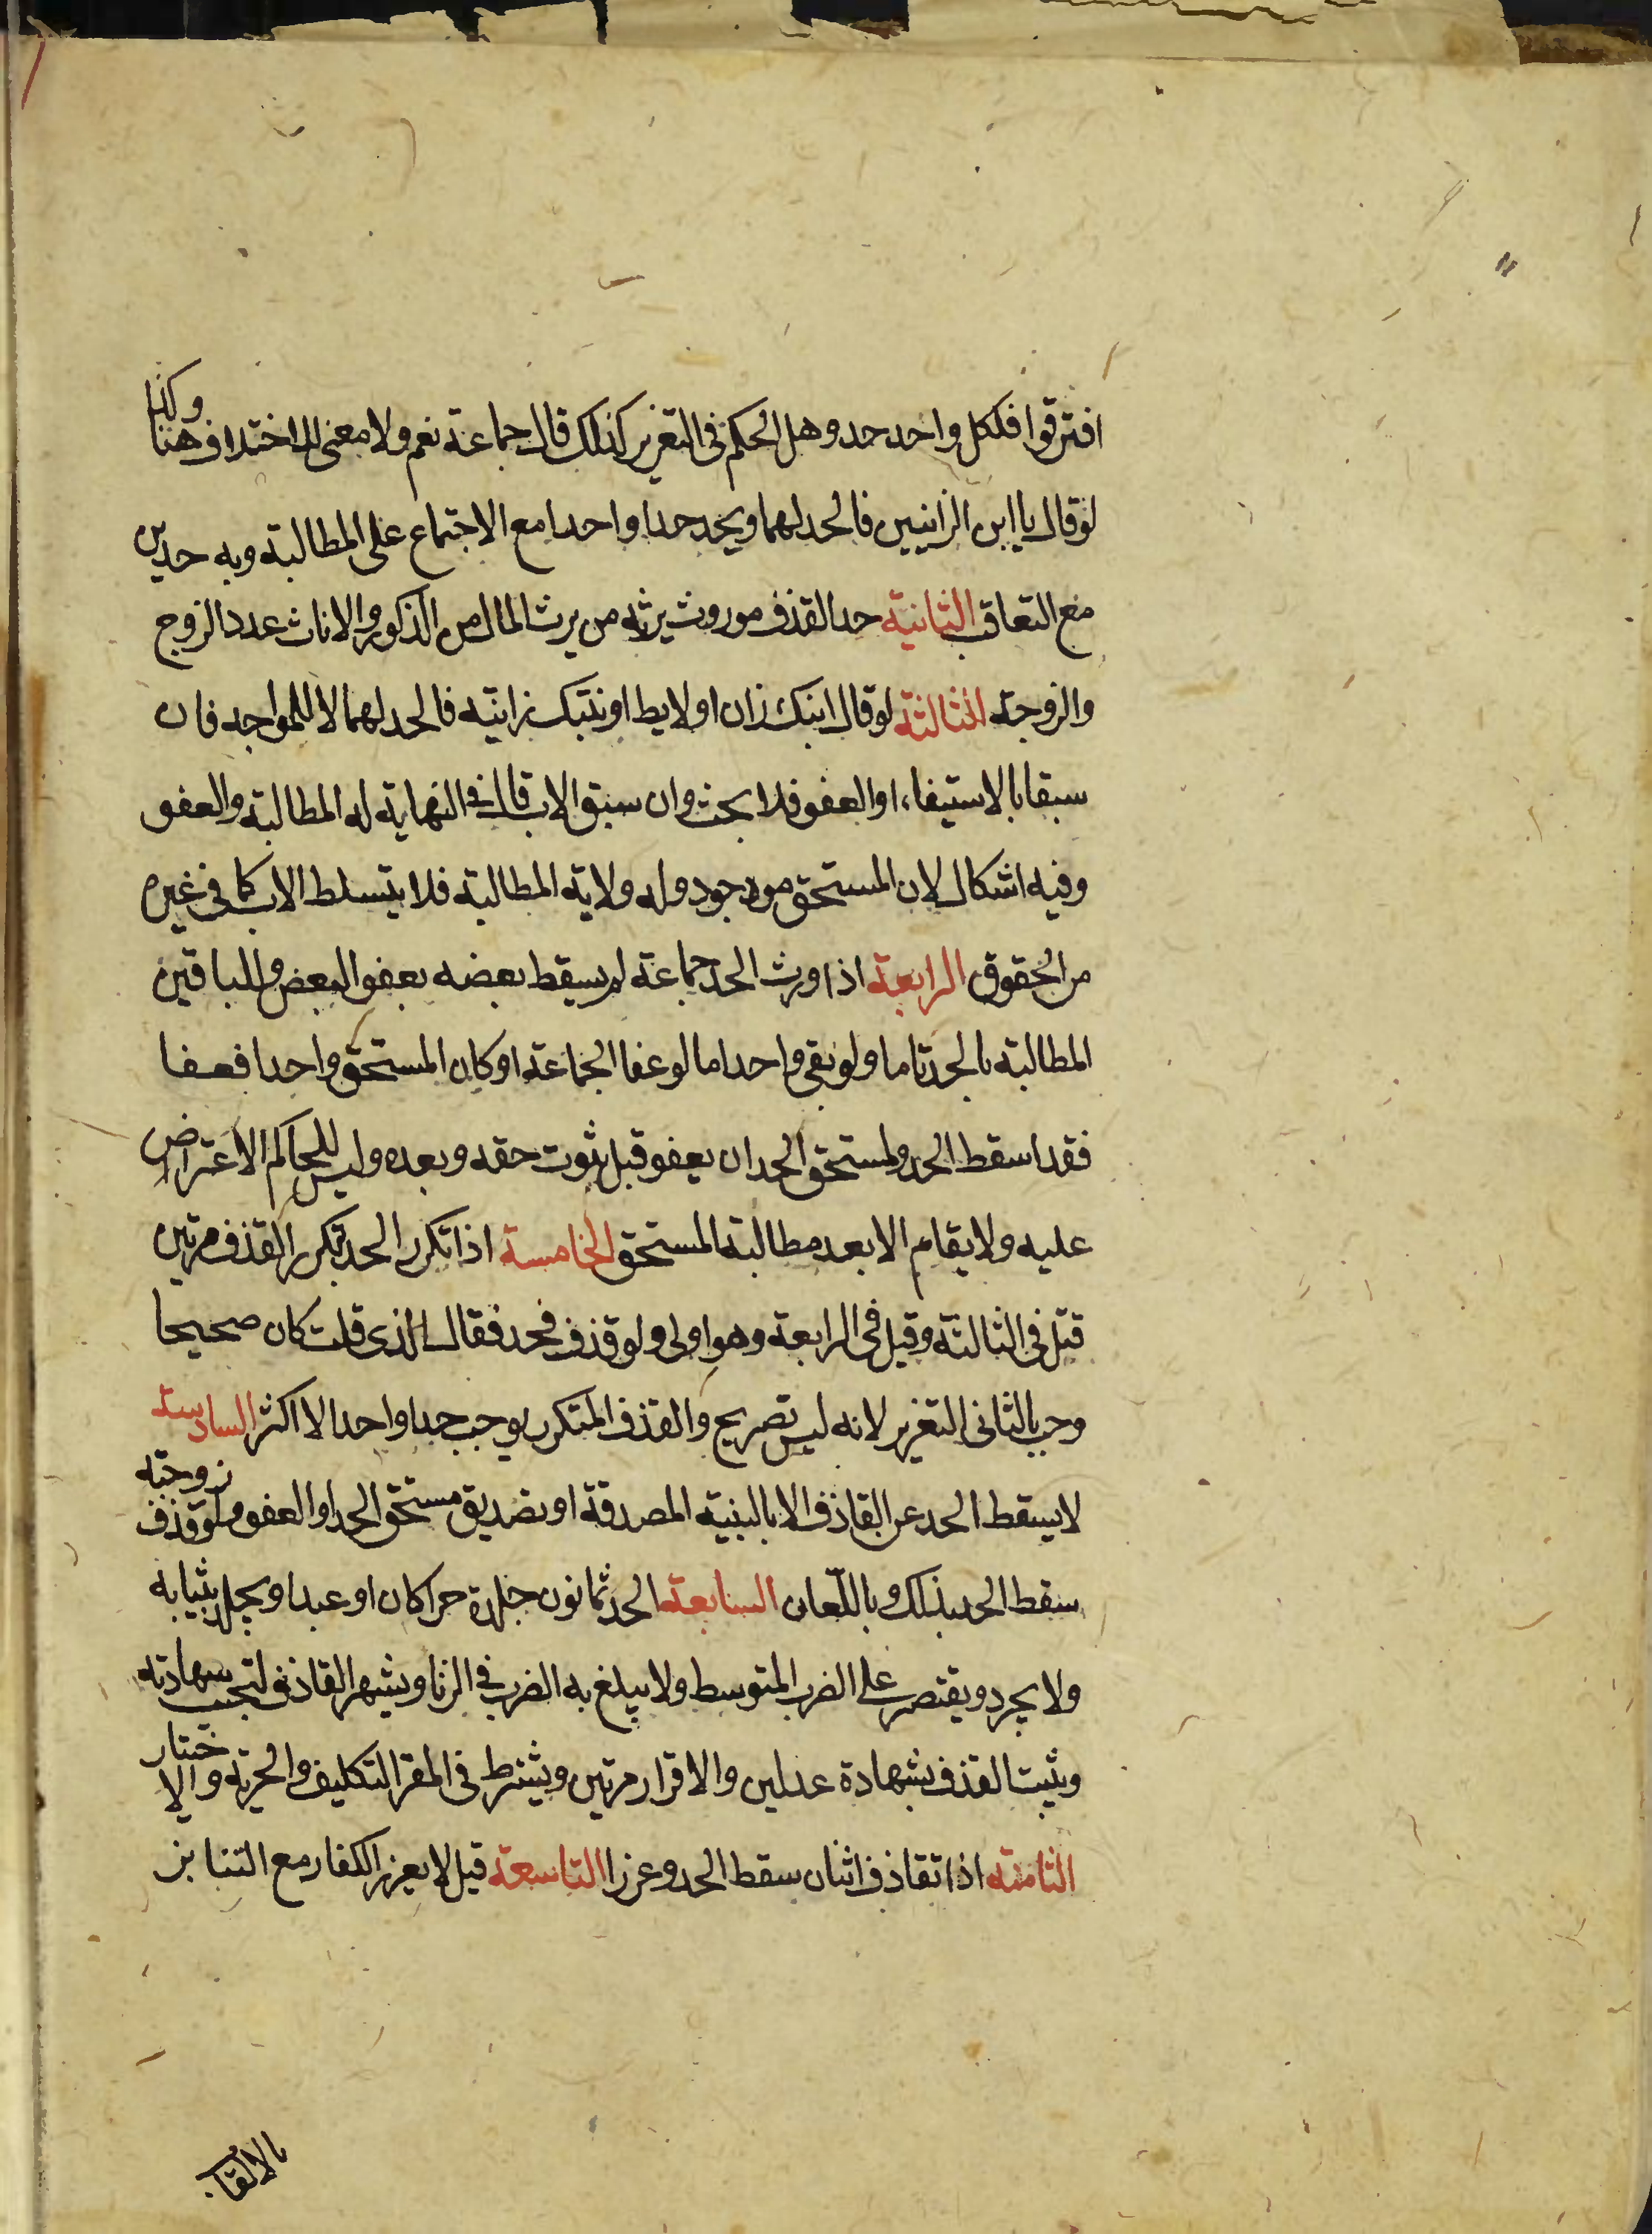 افترقوا فلكل واحد حد وهل الحكم فى التعزير كذلك قال جماعة نعم ولا معنى للاختلاف هنا وكذا
لو قال يا ابن الزانيين فالحد لهما ويحد حدا واحدا مع الاجتماع على المطالبة وبه حدين
مع التعاقب الثانية حد القذف موروث يرثه من يرث المال من الذكور والاناث عدد الزوج
والزوجة الثالثة لو قال ابنك زان او لايط او بنتك زانية فالحد لهما لا للمواجه فان
سبقا بالاستيفاء او العفو فلا بحث وان سبق الاب قال فى النهاية له المطالبة والعفو
وفيه اشكال لان المستحق موجود وله ولاية المطالبة فلا يتسلط الاب كما فى غيره
من الحقوق الرابعة اذا ورث الحد جماعة لم يسقط بعضه بعفو البعض وللباقين
المطالبة بالحد تاما ولو بقى واحد اما لو عفا الجماعة او كان المستحق واحدا فعفا
فقد اسقط الحد ولمستحق الحد ان يعفو قبل ثبوت حقه وبعده وليس للحاكم الاعتراض
عليه ولا يقام الا بعد مطالبة المستحق الخامسة اذا تكرر الحد بتكرر القذف مرتين
قتل فى الثالثة وقيل فى الرابعة وهو اولى ولو قذف فحد فقال الذى قلت كان صحيحا
وجب بالثانى التعزير لانه ليس تصريح والقذف المتكرر يوجب حدا واحدا لا اكثر السادسة
لا يسقط الحد عن القاذف الا بالبينة المصدقة او تصديق مستحق الحد او العفو ولو قذف زوجته
سقط الحد بذلك وباللعان السابعة الحد ثمانون جلدة حرا كان او عبدا ويجلد بثيابه
ولا يجرد ويقتصر على الضرب المتوسط ولا يبلغ به الضرب فى الزنا ويشهر القاذف لتجتنب شهادته
ويثبت القذف بشهادة عدلين والاقرار مرتين ويشترط فى المقر التكليف والحرية والاختيار
الثامنة اذا تقاذف اثنان سقط الحد وعزرا التاسعة قيل لا يعزر الكفار مع التنابز
بالالقاب